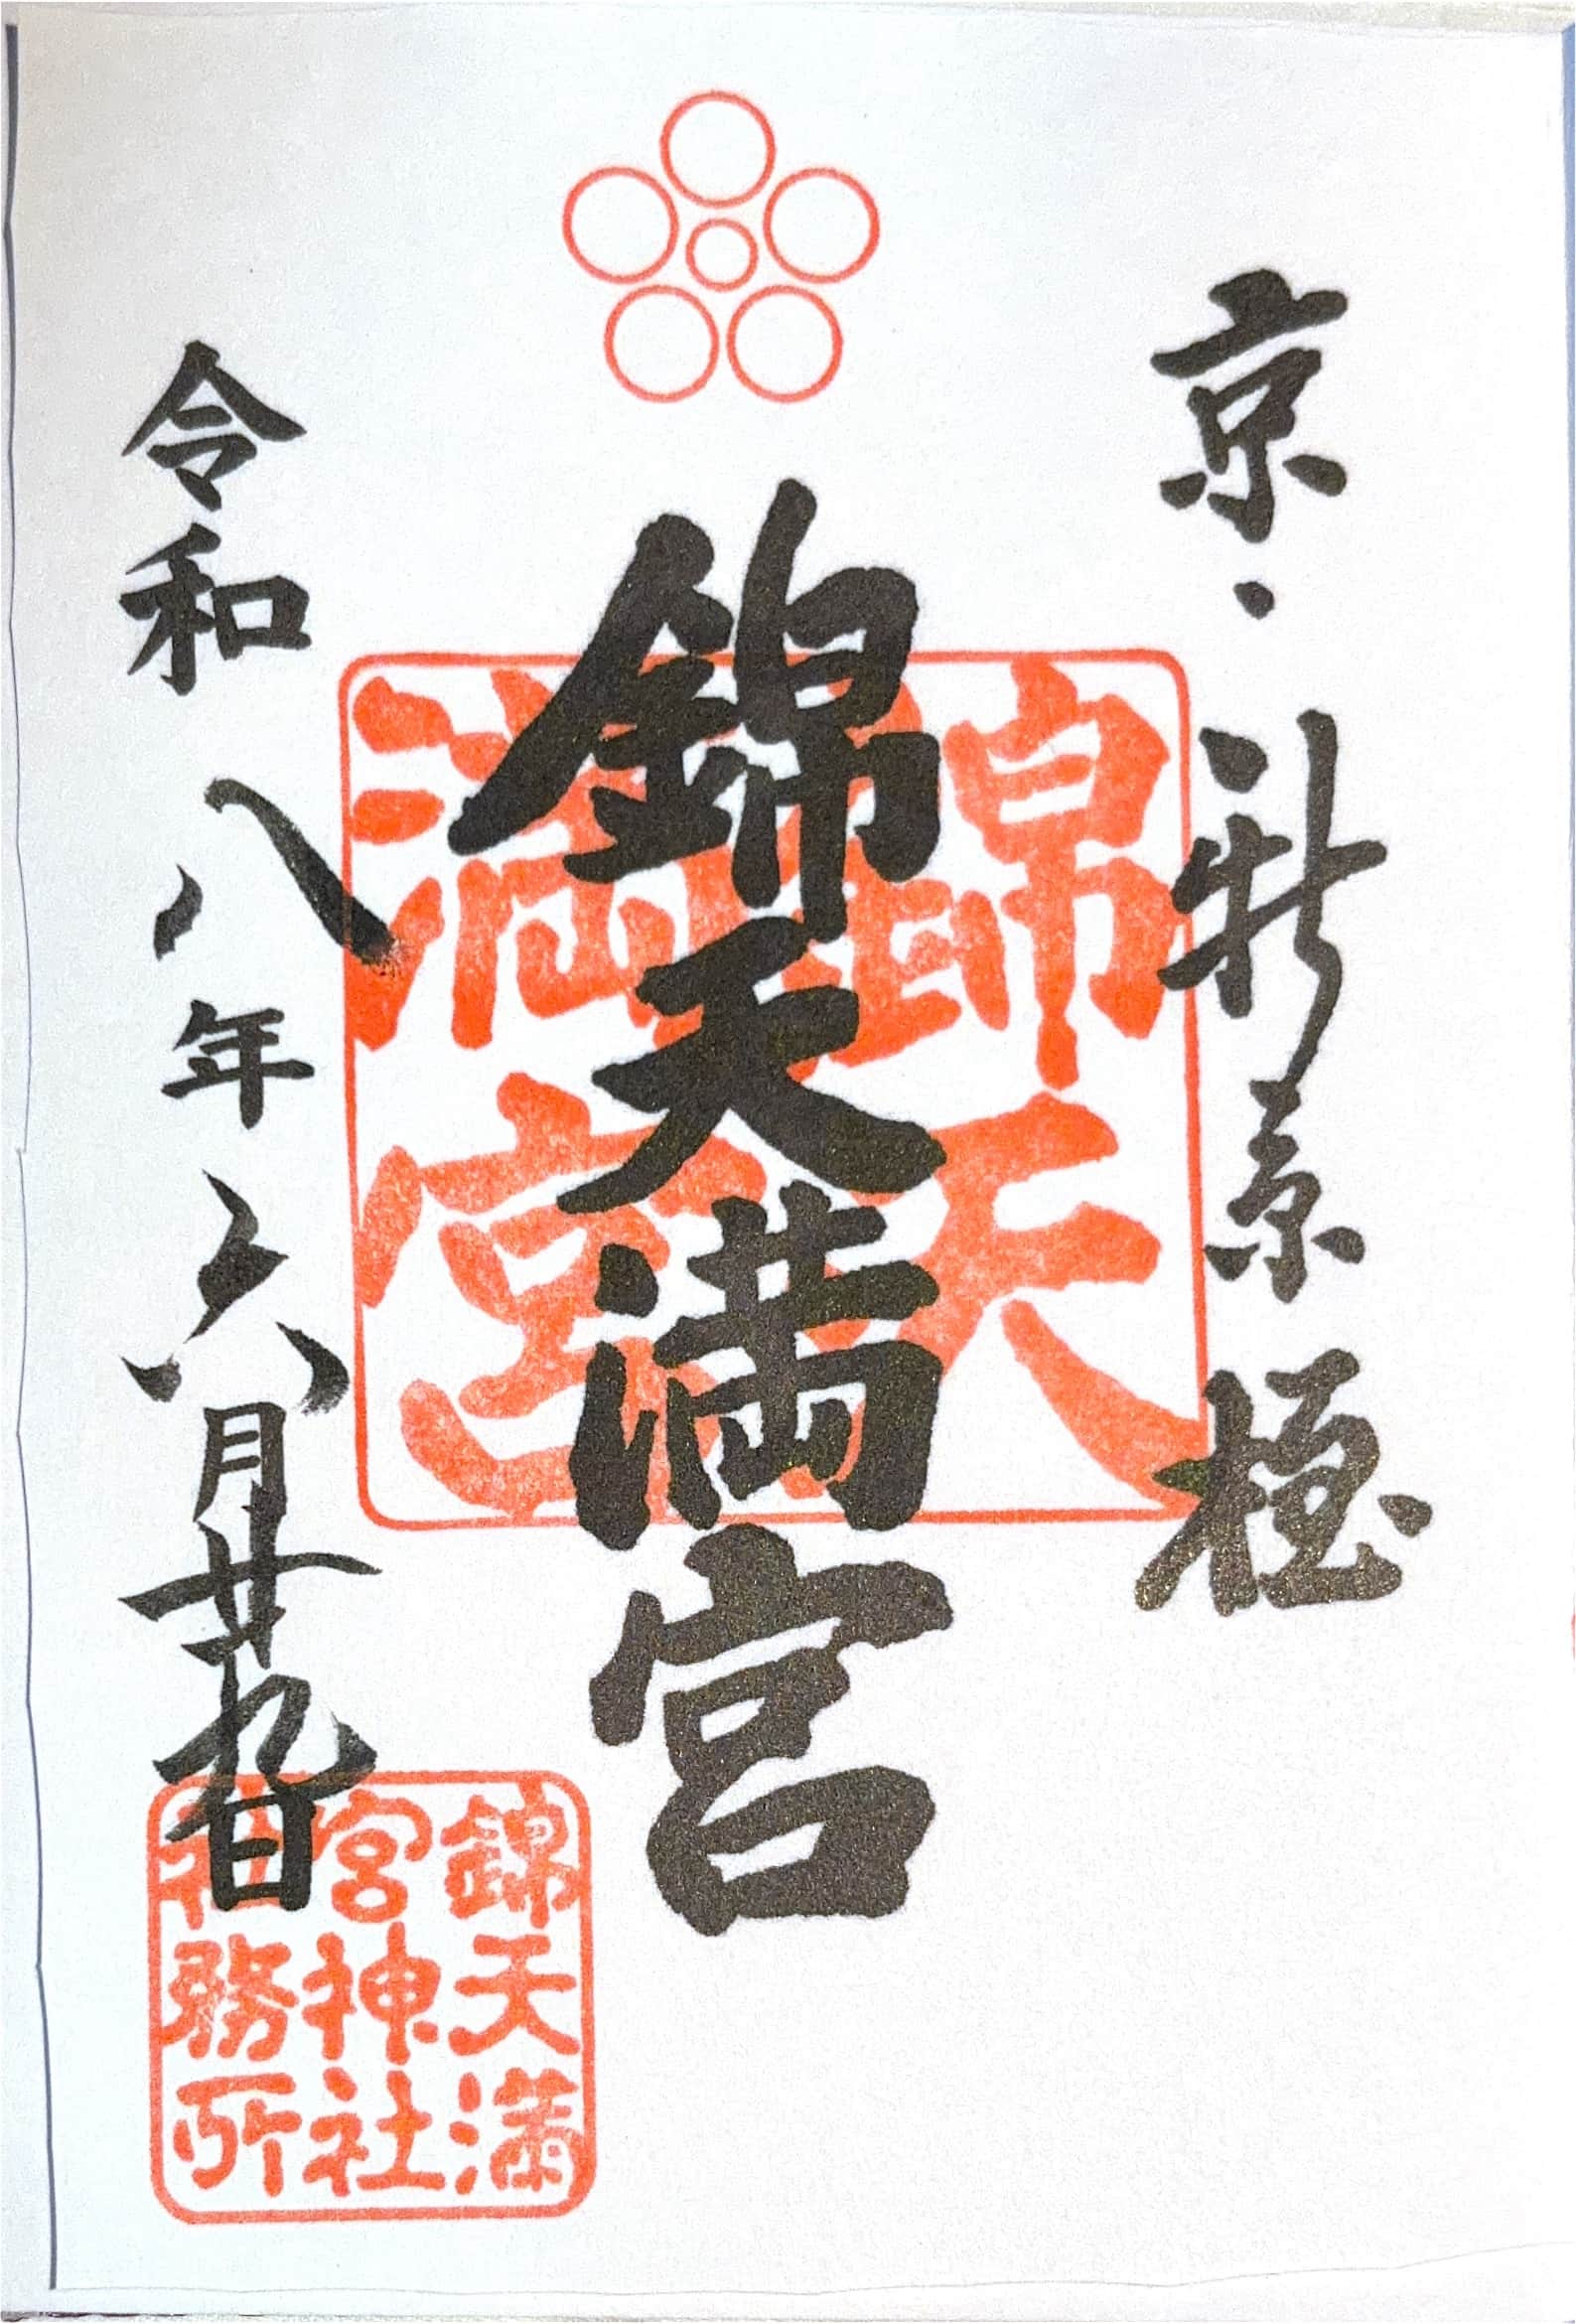 京・新京極
錦天満宮
錦天満宮
令和八年六月廿九日
錦天満
宮神社
社務所